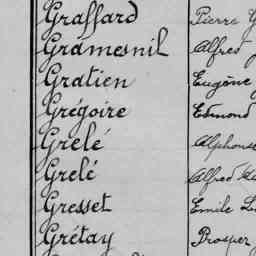 Graffard Pierre
Gramesnil Alfred
Gratien Eugène
Grégoire Edmond
Grelé Alphonse
Grelé Alfred
Gresset Emile
Grétay Prosper